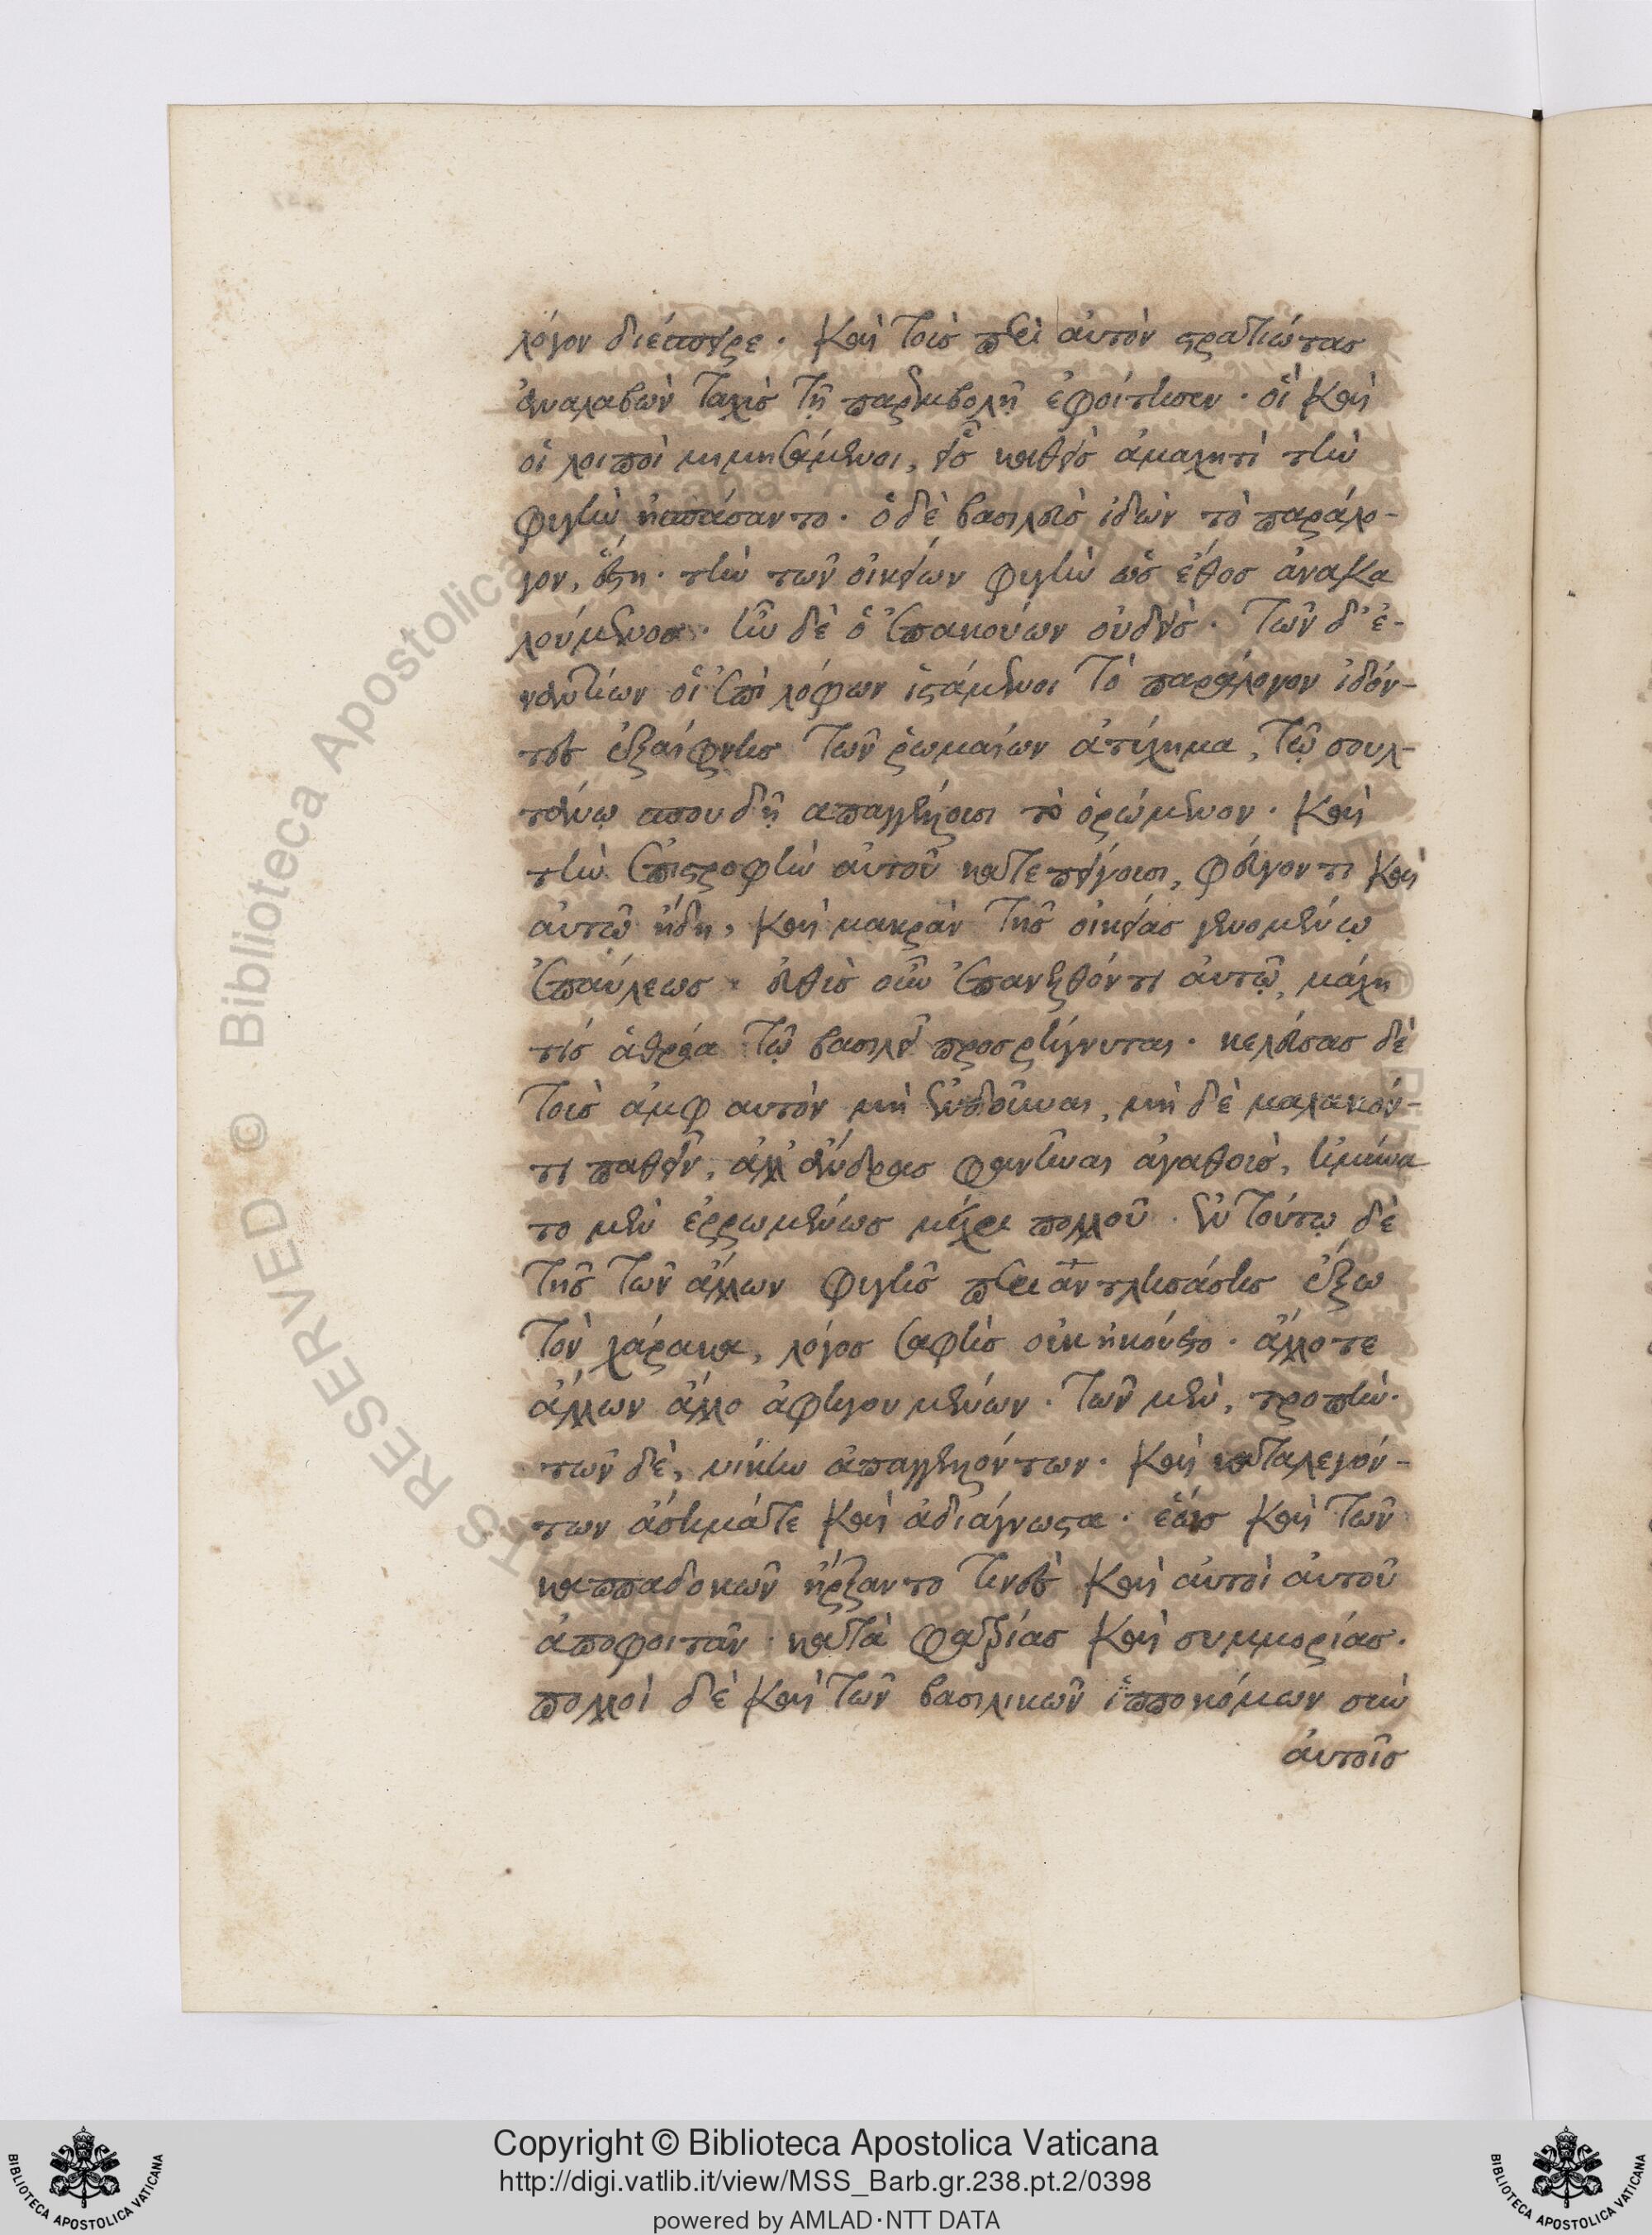 λόγον διέσπειρε. καὶ τοὺς περὶ αὐτὸν στρατιώτας
ἀναλαβὼν ταχὺς τῇ παρεμβολῇ ἐφοίτησεν. οἳ καὶ
οἱ λοιποὶ μιμησάμενοι, εἷς καθεὶς ἀμαχητὶ τὴν
φυγὴν ἠσπάσαντο. ὁ δὲ βασιλεὺς ἰδὼν τὸ παράλο-
γον, ἔστη. τὴν τῶν οἰκείων φυγὴν ὡς ἔθος ἀνακα
λούμενος. ἦν δὲ ὁ ἐπακούων οὐδείς. τῶν δ' ἐ-
ναντίων οἱ ἐπὶ λόφων ἱστάμενοι τὸ παράλογον ἰδόν-
τες ἐξαίφνης τῶν ῥωμαίων ἀτύχημα, τῷ σουλ-
τάνῳ σπουδῇ ἀπαγγέλλουσι τὸ ὁρώμενον. καὶ
τὴν ἐπιστροφὴν αὐτοῦ κατεπείγουσι, φεύγοντι καὶ
αὐτῷ ἤδη, καὶ μακρὰν τῆς οἰκείας γενομένῳ
ἐπαύλεως. εὐθὺς οὖν ἐπανελθόντι αὐτῷ, μάχη
τίς ἀθρόα τῷ βασιλεῖ προσρήγνυται. κελεύσας δὲ
τοὺς ἀμφ αυτὸν μὴ ἐνδοῦναι, μὴ δὲ μαλακόν-
τι παθεῖν, ἀλλ' ἄνδρας φανῆναι ἀγαθοὺς, ἠμύνα
το μὲν ἐρρωμένως μέχρι πολλοῦ. ἐν τούτῳ δὲ
τῆς τῶν ἄλλων φυγῆς περιαντλησάσης ἔξω
τὸν χάρακα, λόγος σαφὴς οὐκ ἠκούετο. ἄλλοτε
ἄλλων ἄλλο ἀφηγουμένων. τῶν μὲν, τροπὴν.
τῶν δὲ, νίκην ἀπαγγελλόντων. καὶ καταλεγόν-
των ἄσημάτε καὶ ἀδιάγνωστα. ἕως καὶ τῶν
καππαδοκῶν ἤρξαντο τινὲς καὶ αὐτοὶ αὐτοῦ
ἀποφοιτᾶν. κατὰ φατρίας καὶ συμμορίας.
πολλοὶ δὲ καὶ τῶν βασιλικῶν ἱπποκόμων σὺν
αὐτοῖς
Copyright © Biblioteca Apostolica Vaticana
http://digi.vatlib.it/view/MSS_Barb.gr.238.pt.2/0398
powered by AMLAD·NTT DATA